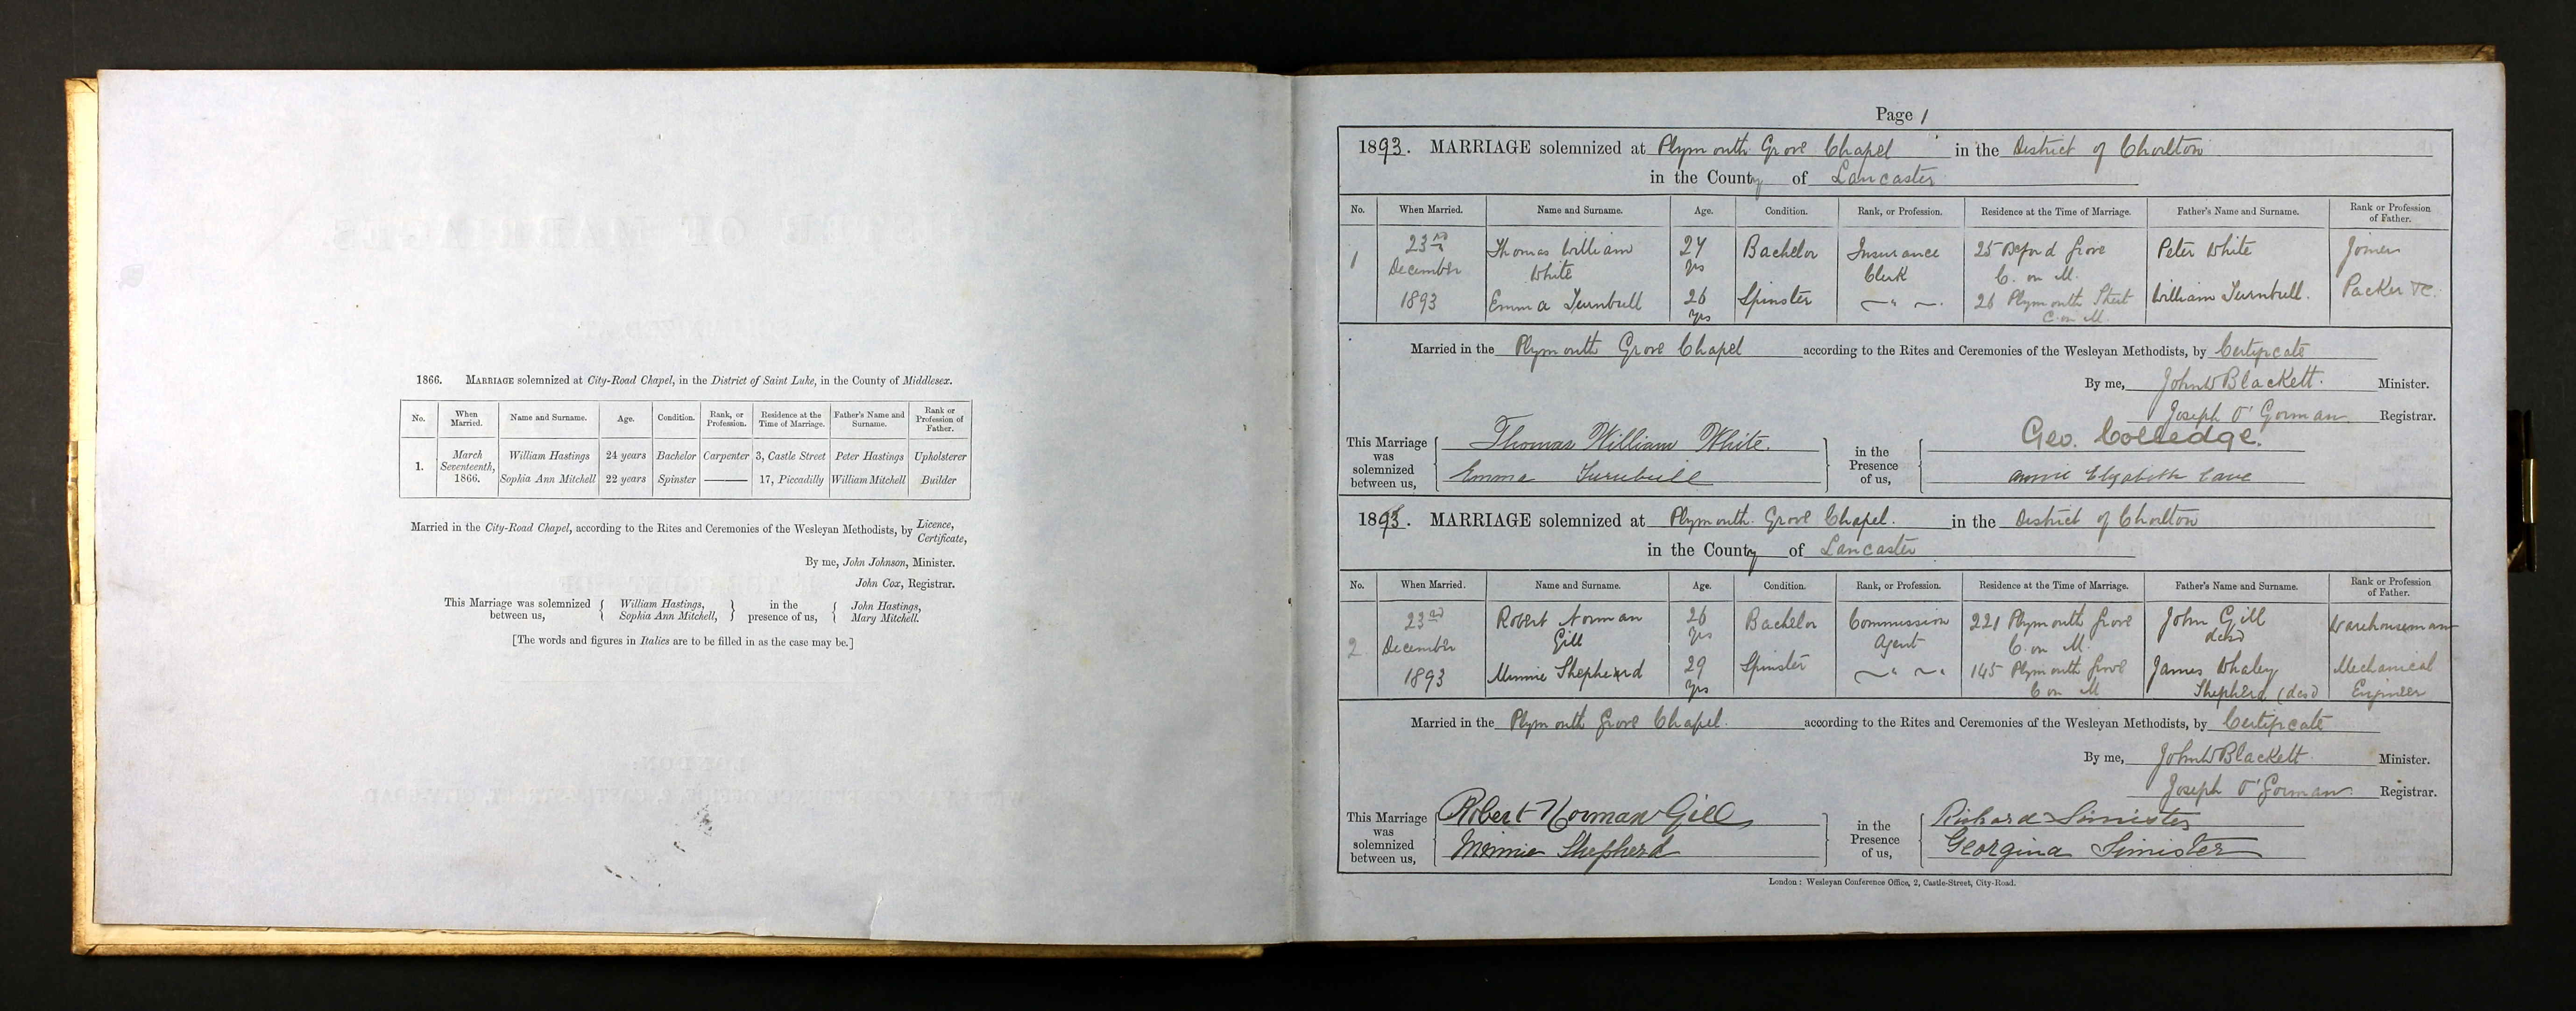 1866. MARRIAGE solemnized at City-Road Chapel, in the District of Saint Luke, in the County of Middlesex.
No. When Married. Name and Surname. Age. Condition. Rank, or Profession. Residence at the Time of Marriage. Father's Name and Surname. Rank or Profession of Father.
1. March Seventeenth, 1866. William Hastings 24 years Bachelor Carpenter 3, Castle Street Peter Hastings Upholsterer
Sophia Ann Mitchell 22 years Spinster ——— 17, Piccadilly William Mitchell Builder
Married in the City-Road Chapel, according to the Rites and Ceremonies of the Wesleyan Methodists, by Licence, Certificate,
By me, John Johnson, Minister.
John Cox, Registrar.
This Marriage was solemnized between us, { William Hastings, Sophia Ann Mitchell, } in the presence of us, { John Hastings, Mary Mitchell.
[The words and figures in Italics are to be filled in as the case may be.]
Page 1
1893. MARRIAGE solemnized at Plymouth Grove Chapel in the District of Chorlton
in the County of Lancaster
No. When Married. Name and Surname. Age. Condition. Rank, or Profession. Residence at the Time of Marriage. Father's Name and Surname. Rank or Profession of Father.
1 23rd December 1893 Thomas William White 24 yrs Bachelor Insurance Clerk 25 Grove C. on M. Peter White Joiner
Emma Turnbull 26 yrs Spinster 26 Plymouth Street C. on M. William Turnbull. Packer
Married in the Plymouth Grove Chapel according to the Rites and Ceremonies of the Wesleyan Methodists, by Certificate
By me, John W Blackett. Minister.
Joseph O'Gorman Registrar.
This Marriage was solemnized between us, { Thomas William White. Emma Turnbull } in the Presence of us, { Geo. Colledge. Annie Elizabeth Cave
1893. MARRIAGE solemnized at Plymouth Grove Chapel. in the District of Chorlton
in the County of Lancaster
No. When Married. Name and Surname. Age. Condition. Rank, or Profession. Residence at the Time of Marriage. Father's Name and Surname. Rank or Profession of Father.
2 23rd December 1893 Robert Norman Gill 26 yrs Bachelor Commission Agent 221 Plymouth Grove C. on M. John Gill decd Warehouseman
Minnie Shepherd 29 yrs Spinster 145 Plymouth Grove C on M James Whaley Shepherd (decd) Mechanical Engineer
Married in the Plymouth Grove Chapel. according to the Rites and Ceremonies of the Wesleyan Methodists, by Certificate
By me, John W Blackett Minister.
Joseph O'Gorman Registrar.
This Marriage was solemnized between us, { Robert Norman Gill Minnie Shepherd } in the Presence of us, { Richard Simister Georgina Simister
London: Wesleyan Conference Office, 2, Castle-Street, City-Road.